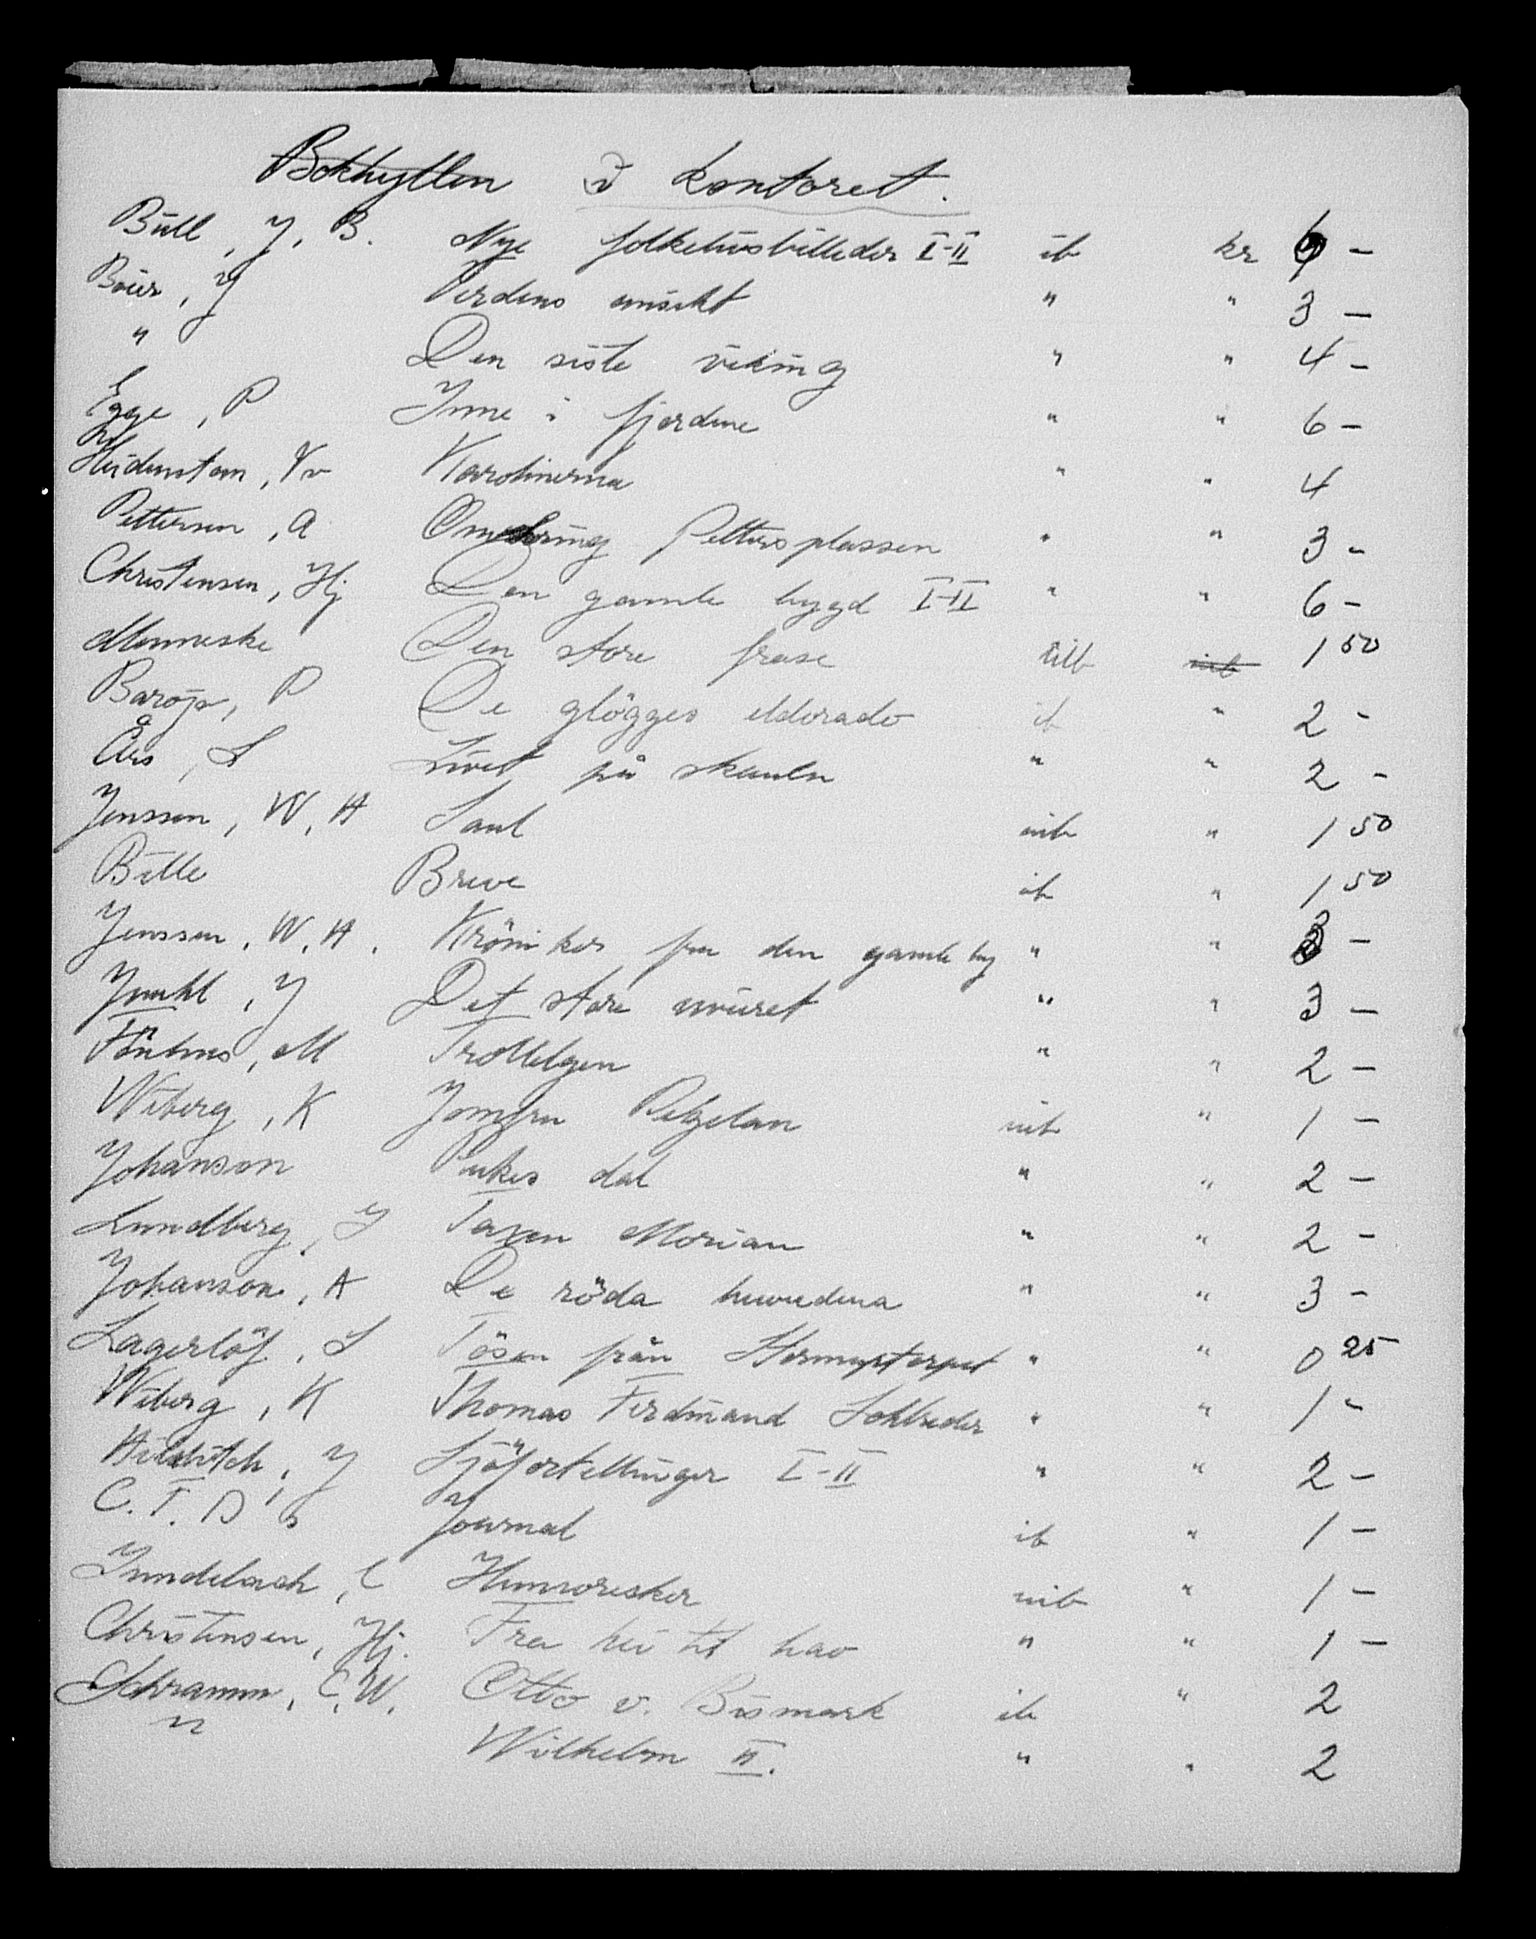 Bokhyllen i kontoret.
Bull, J. B. Nye folkelivsbilleder I-II ib kr 6 -
Boier, J Verdens ansikt " " 3 -
" Den siste viking " " 4 -
Egge, P Inne i fjordene " " 6 -
Heidenstam, V v Karolinerna " " 4
Pettersen, A Omkring Pettersplassen " " 3 -
Christensen, Hj Den gamle bygd I-II " " 6 -
Menneske Den store frase uib 1 50
Barøja, P De glögges eldorado ib " 2 -
Års, L Livet på skauen " " 2 -
Jenssen, W, A Saul uib " 1 50
Bille Breve ib " 1 50
Jenssen, W, A. Kröniker fra den gamle by " " 3 -
J Det store uveiret " " 3 -
Fönhus, M Trollelgen " " 2 -
Wiberg, K Jomfru uib " 1 -
Johanson dal " " 2 -
Lundberg, Morian " " 2 -
Johanson, A De röda huvudena " " 3 -
Lagerlöf, S Tösen från Stormyrtorpet " " 0 25
Wiberg, K Thomas Ferdinand " " 1 -
Hilditch, J Sjöfortellinger I-II " " 2 -
C. T. D Journal ib " 1 -
Humoresker uib " 1 -
Christensen, Hj. Fra hei til hav " " 1 -
Schramm, C, W. Otto v. Bismark ib " 2
" Wilhelm II. " " 2